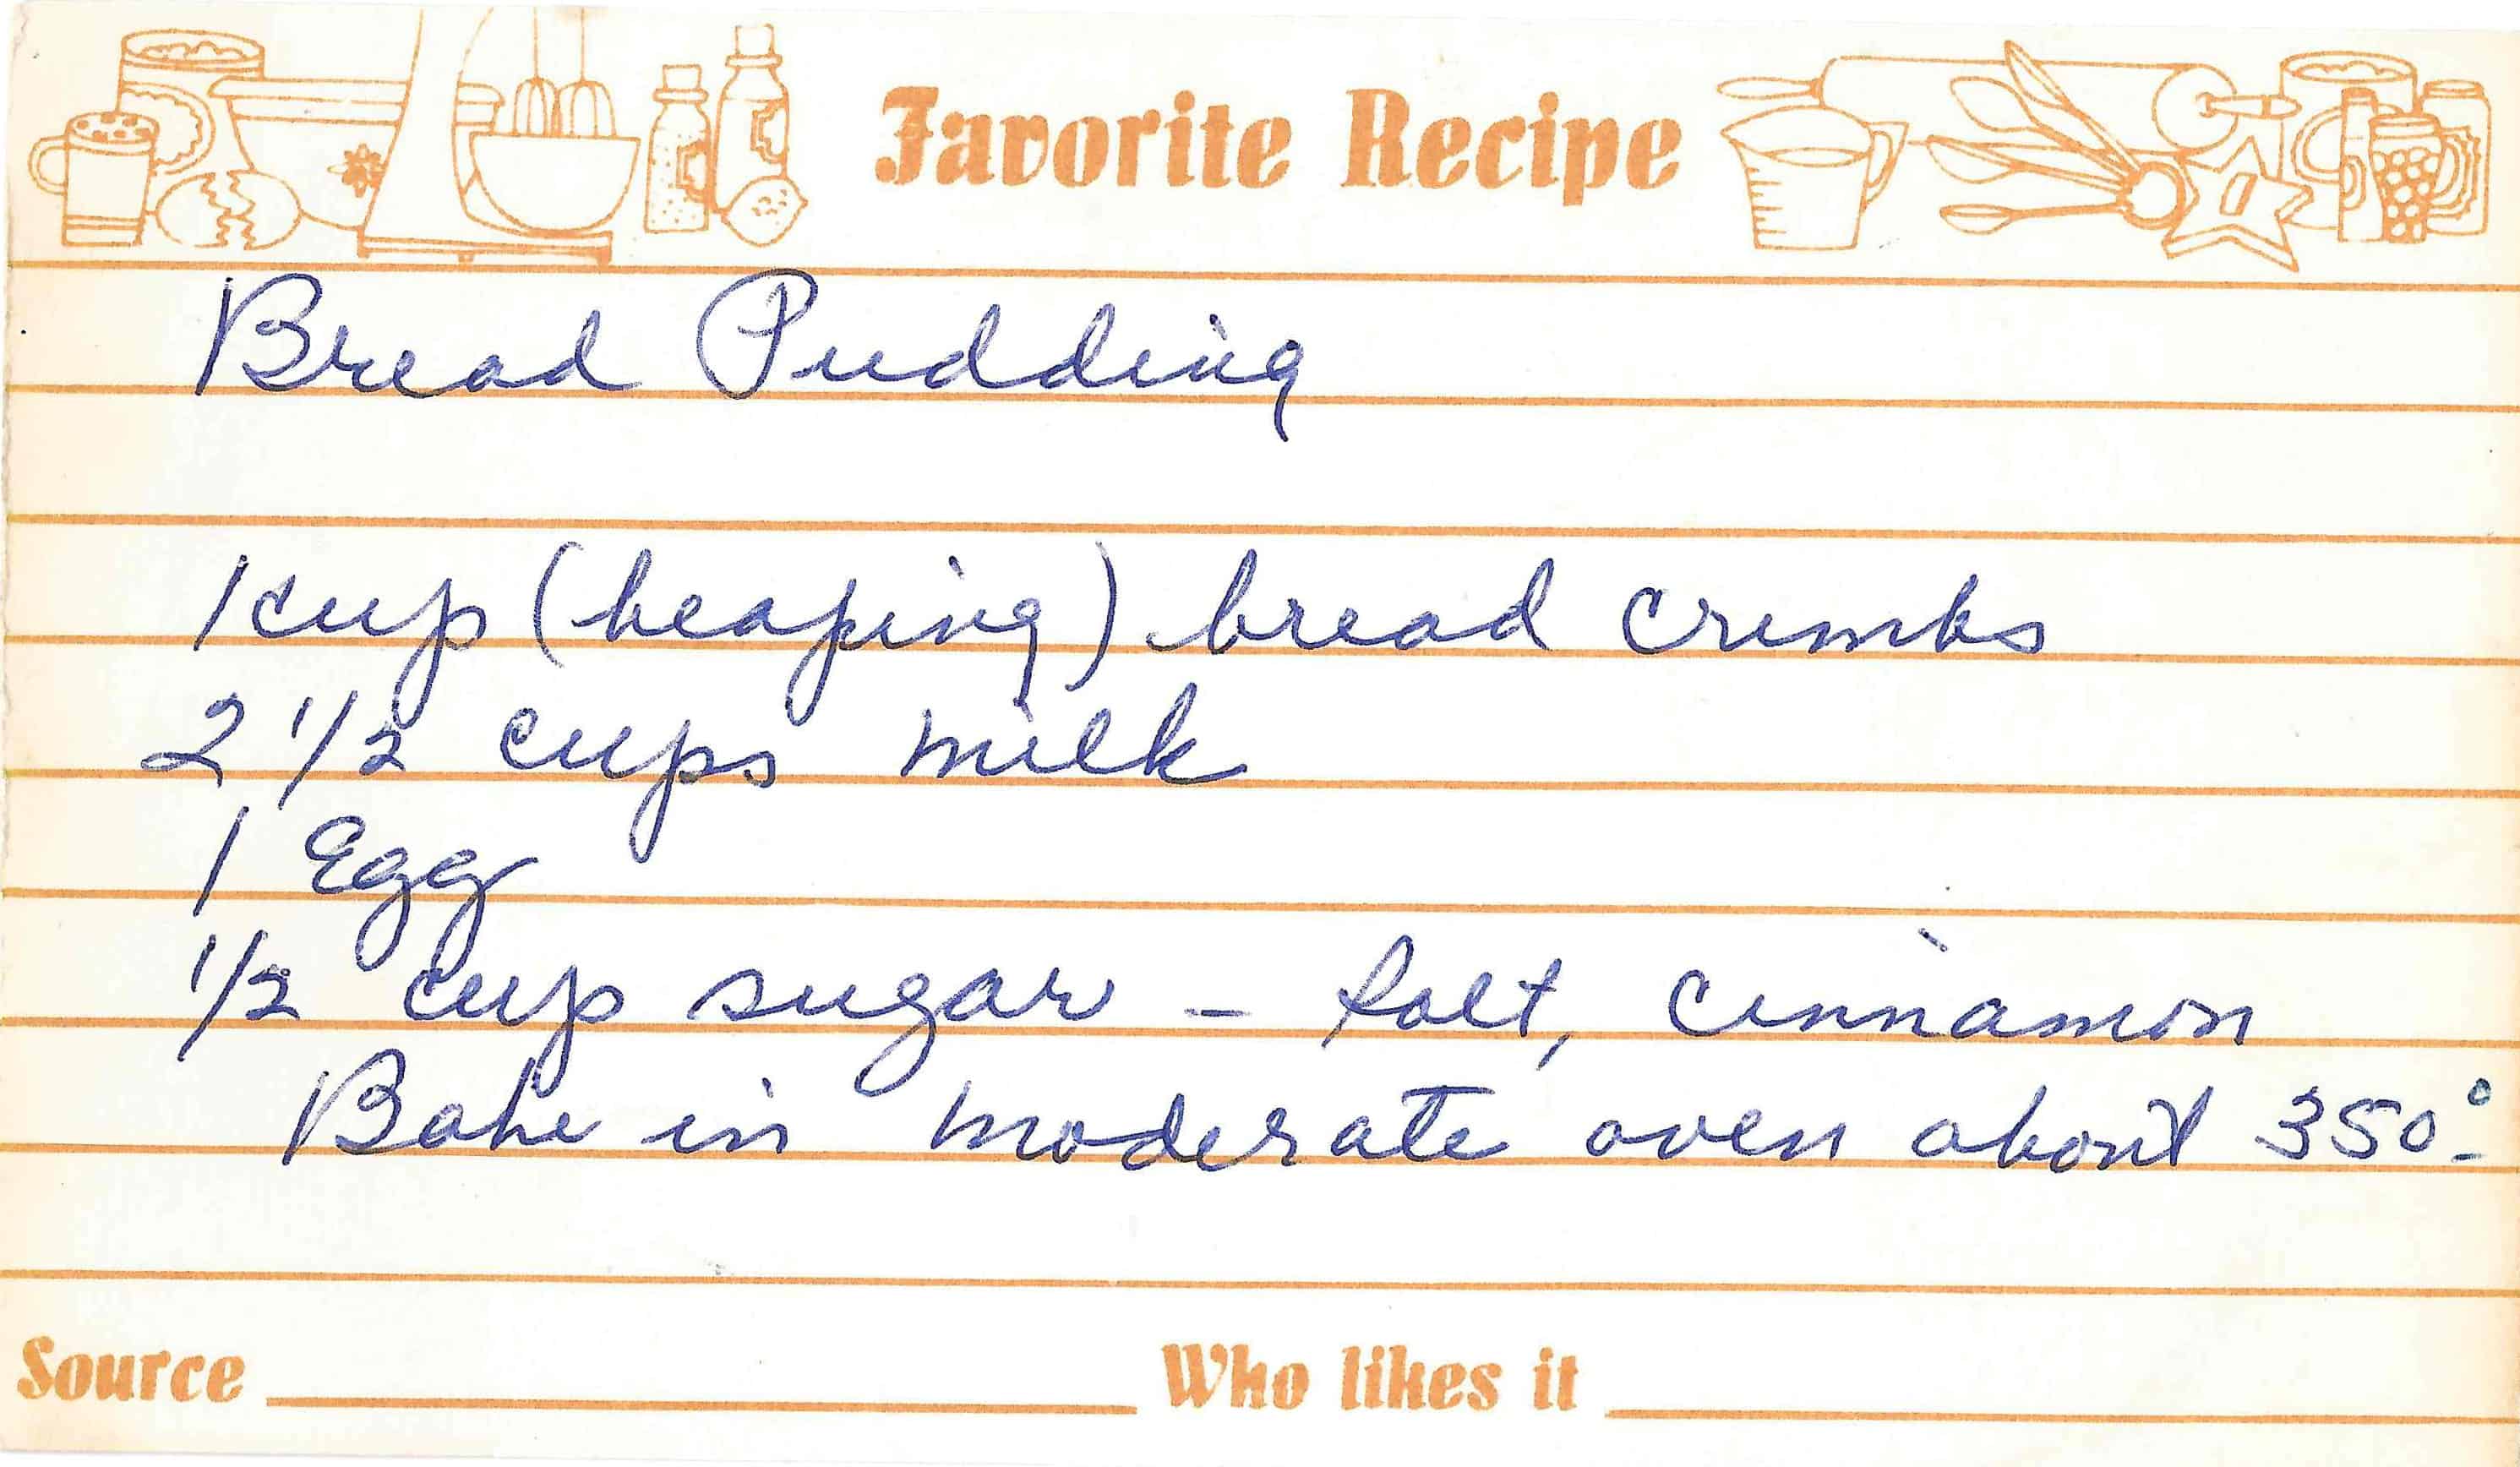 Favorite Recipe
Bread Pudding
1 cup (heaping) bread crumbs
2 1/2 cups milk
1 Egg
1/2 cup sugar - salt, cinnamon
Bake in moderate oven about 350°-
Source Who likes it